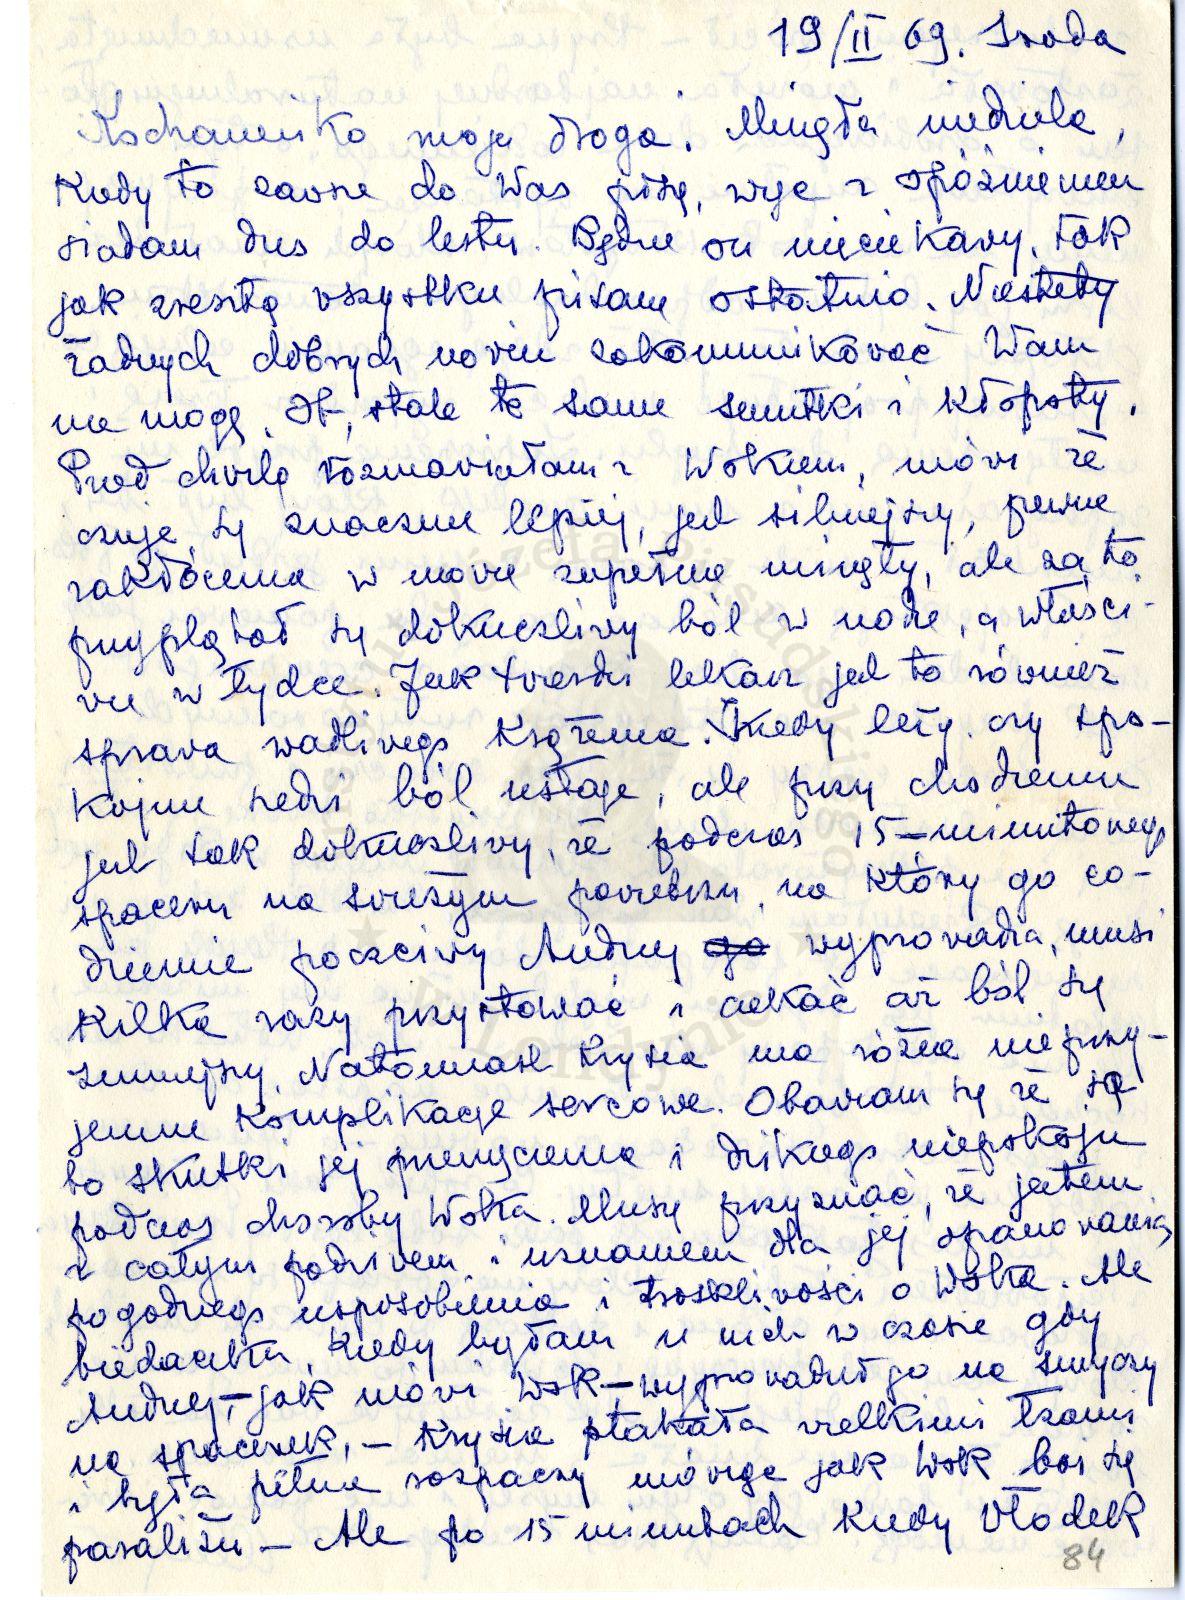 19/II 69. Środa
Kochaneńko moja droga. Minęła niedziela,
Kiedy to zawsze do Was piszę, więc z opóźnieniem
siadam dziś do listu. Będzie on nieciekawy, tak
jak zresztą wszystkie pisane ostatnio. Niestety
żadnych dobrych nowin zakomunikować Wam
nie mogę. Ot, stale te same smutki i kłopoty.
Przed chwilą rozmawiałam z Wokiem, mówi że
czuje się znacznie lepiej, jest silniejszy, pewne
zakłócenia w mowie zupełnie minęły, ale za to
przyplątał się dokuczliwy ból w nodze, a właści-
wie w łydce. Jak twierdzi lekarz jest to również
sprawa wadliwego krążenia. Kiedy leży czy spo-
kojnie siedzi ból ustaje, ale przy chodzeniu
jest tak dokuczliwy, że podczas 15-minutowego
spaceru na świeżym powietrzu, na który go co-
dziennie poczciwy Andrzej go wyprowadza, musi
kilka razy przystawać i czekać aż ból się
zmniejszy. Natomiast Krysia ma różne nieprzy-
jemne komplikacje sercowe. Obawiam się że są
to skutki jej przemęczenia i dzikiego niepokoju
podczas choroby Woka. Muszę przyznać, że jestem
z całym podziwem i uznaniem dla jej opanowania,
pogodnego usposobienia i troskliwości o Woka. Ale
biedactwo, kiedy byłam u nich w czasie gdy
Andrzej, – jak mówi Wok – wyprowadził go na smyczy
na spacerek, – Krysia płakała wielkimi łzami
i była pełna rozpaczy mówiąc jak Wok boi się
paraliżu – Ale po 15 minutach kiedy Włodek
84
Józefa Piłsudskiego
w Londynie